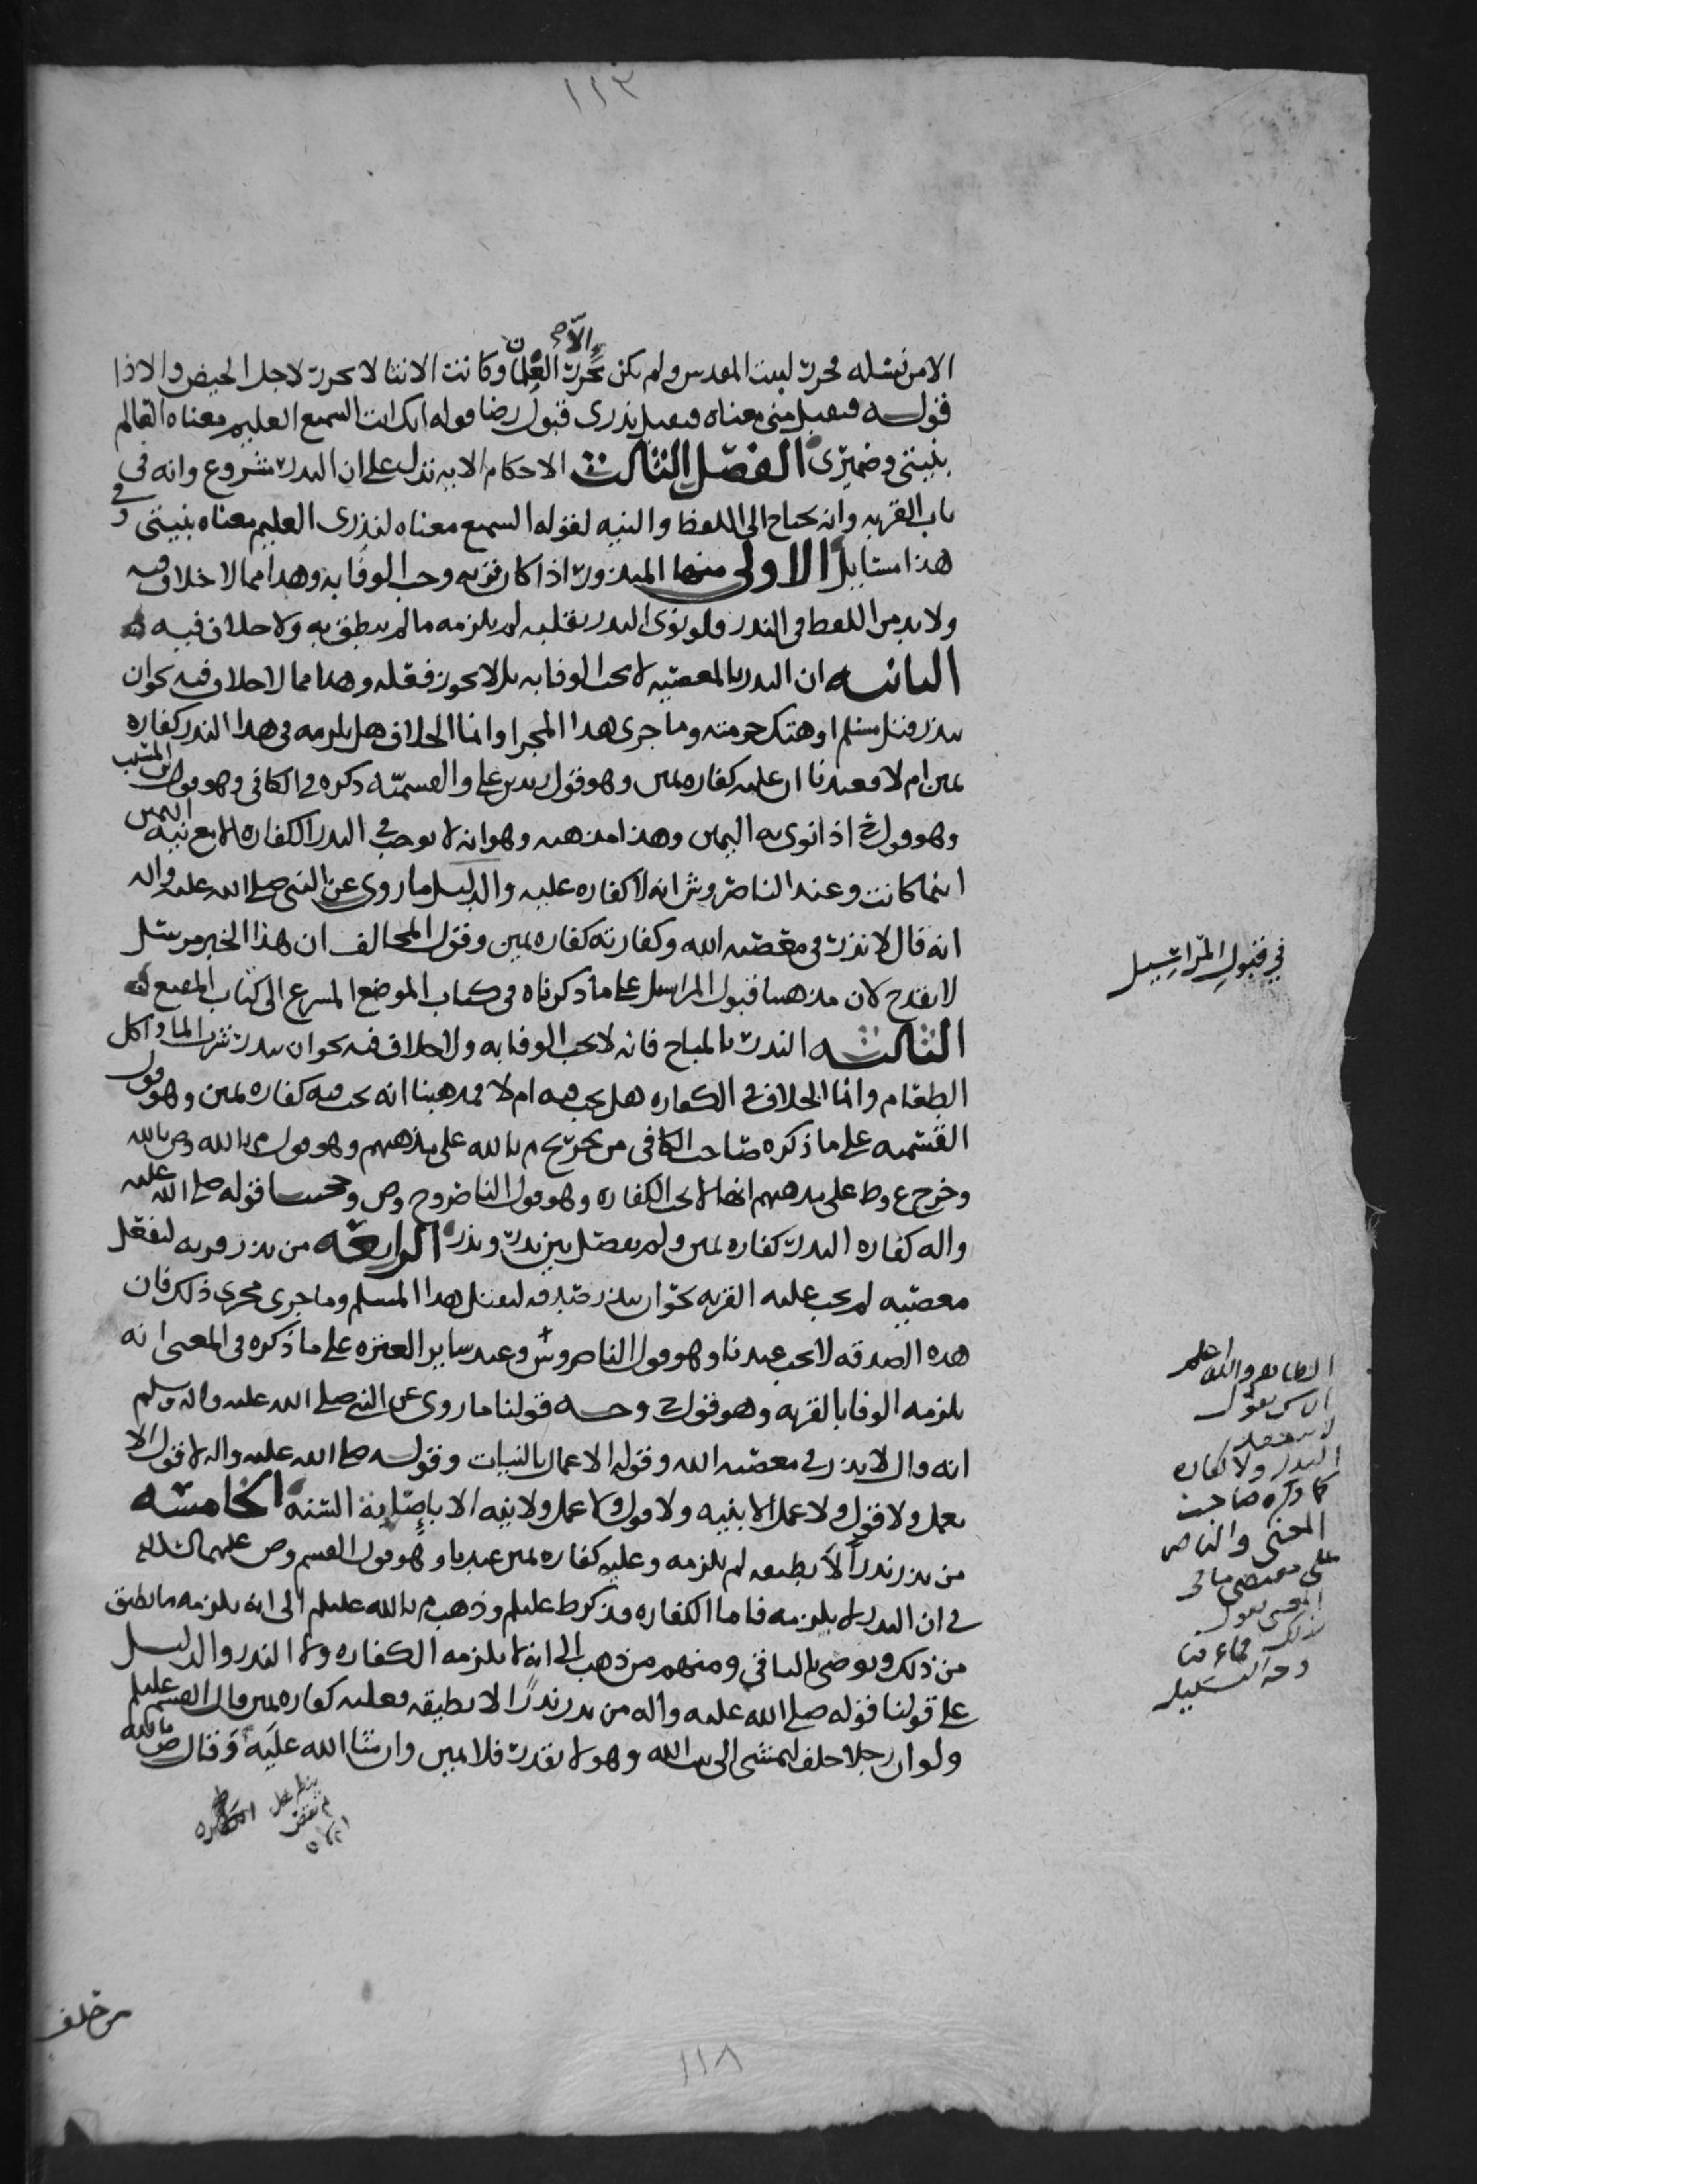 ١١٣
الا من نسله محرر لبيت المقدس ولم يكن يحرر الا الغلمان وكانت الانثا لا تحرر لاجل الحيض والاذا
قوله فتقبل مني معناه فتقبل نذري قبول رضا قوله انك انت السميع العليم معناه العالم
بنيتي وضميري الفصل الثالث الاحكام الايه تدل على ان النذر مشروع وانه في
باب القربه وانه يحتاج الى اللفظ والنيه لقوله السميع معناه لنذري العليم معناه بنيتي وفي
هذا مسايل الاولى منها المنذور اذا كان قربه وجب الوفا به وهذا مما لا خلاف فيه
ولا بد من اللفظ في النذر فلو نوى النذر بقلبه لم يلزمه ما لم ينطق به ولا خلاف فيه
الثانيه ان النذر بالمعصيه لا يجب الوفا به بل لا يجوز فعله وهذا مما لا خلاف فيه نحو ان
ينذر قتل مسلم او هتك حرمته وما جرى هذا المجرا وانما الخلاف هل يلزمه في هذا النذر كفاره
يمين ام لا فعندنا ان عليه كفاره يمين وهو قول زيد بن علي والقسميه ذكره في الكافي وهو قول ابن المسيب
وهو قول ح اذا نوى به اليمين وهذا مذهبه وهو انه لا يوجب في النذر الكفاره الا مع نيه اليمين
اينما كانت وعند الناصر وش انه لا كفاره عليه والدليل ما روي عن النبي صلى الله عليه واله
انه قال لا نذر في معصيه الله وكفارته كفاره يمين وقول المخالف ان هذا الخبر مرسل
لا يقدح لان مذهبنا قبول المراسيل على ما ذكرناه في كتاب الموضع المسرع الى كتاب المقنع
الثالثه النذر بالمباح فانه لا يجب الوفا به ولا خلاف فيه نحو ان ينذر شرب الما واكل
الطعام وانما الخلاف في الكفاره هل يجب فيه ام لا فمذهبنا انه يجب فيه كفاره يمين وهو قول
القسميه على ما ذكره صاحب الكافي من تخريج م بالله على مذهبهم وهو قول م بالله وص بالله
وخرج ع وط على مذهبهم انها لا تجب الكفاره وهو قول الناصر وح وص وحجتنا قوله صلى الله عليه
واله كفاره النذر كفاره يمين ولم يفصل بين نذر ونذر الرابعه من نذر قربه لفعل
معصيه لم يجب عليه القربه نحو ان ينذر صدقه ليقتل هذا المسلم وما جرى مجرى ذلك فان
هذه الصدقه لا تجب عندنا وهو قول الناصر وش وعند ساير العتره على ما ذكره في المغني انه
يلزمه الوفا بالقربه وهو قول ح وجه قولنا ما روي عن النبي صلى الله عليه واله وسلم
انه قال لا نذر في معصيه الله وقوله الاعمال بالنيات وقوله صلى الله عليه واله لا قول الا
بعمل ولا قول ولا عمل الا بنيه ولا قول ولا عمل ولا نيه الا باصابة السنه الخامسه
من نذر نذرا لا يطيقه لم يلزمه وعليه كفاره يمين عندنا وهو قول القسم وص عليهما السلام
في ان النذر لا يلزمه فاما الكفاره فذكر ط عليلم وذهب م بالله عليلم الى انه يلزمه ما يطيق
من ذلك ويوصي بالباقي ومنهم من ذهب الى انه لا يلزمه الكفاره ولا النذر والدليل
على قولنا قوله صلى الله عليه واله من نذر نذرا لا يطيقه فعليه كفاره يمين قال القسم عليلم
ولو ان رجلا حلف ليمشي الى بيت الله وهو لا يقدر فلا يمين وان شا الله عليه وقال ص بالله
في قبول المراسيل
الظاهر والله اعلم
ان ش يقول
لا ينعقد
النذر ولا كفاره
كما ذكره صاحب
المغني والناصر
على مقتضى ما في
من خلف
١١٨